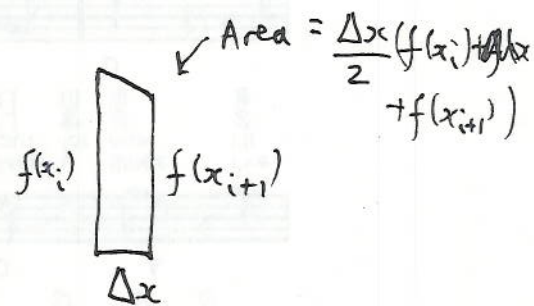 Area = Δx/2 (f(x_i)
+ f(x_{i+1}))
f(x_i)
f(x_{i+1})
Δx